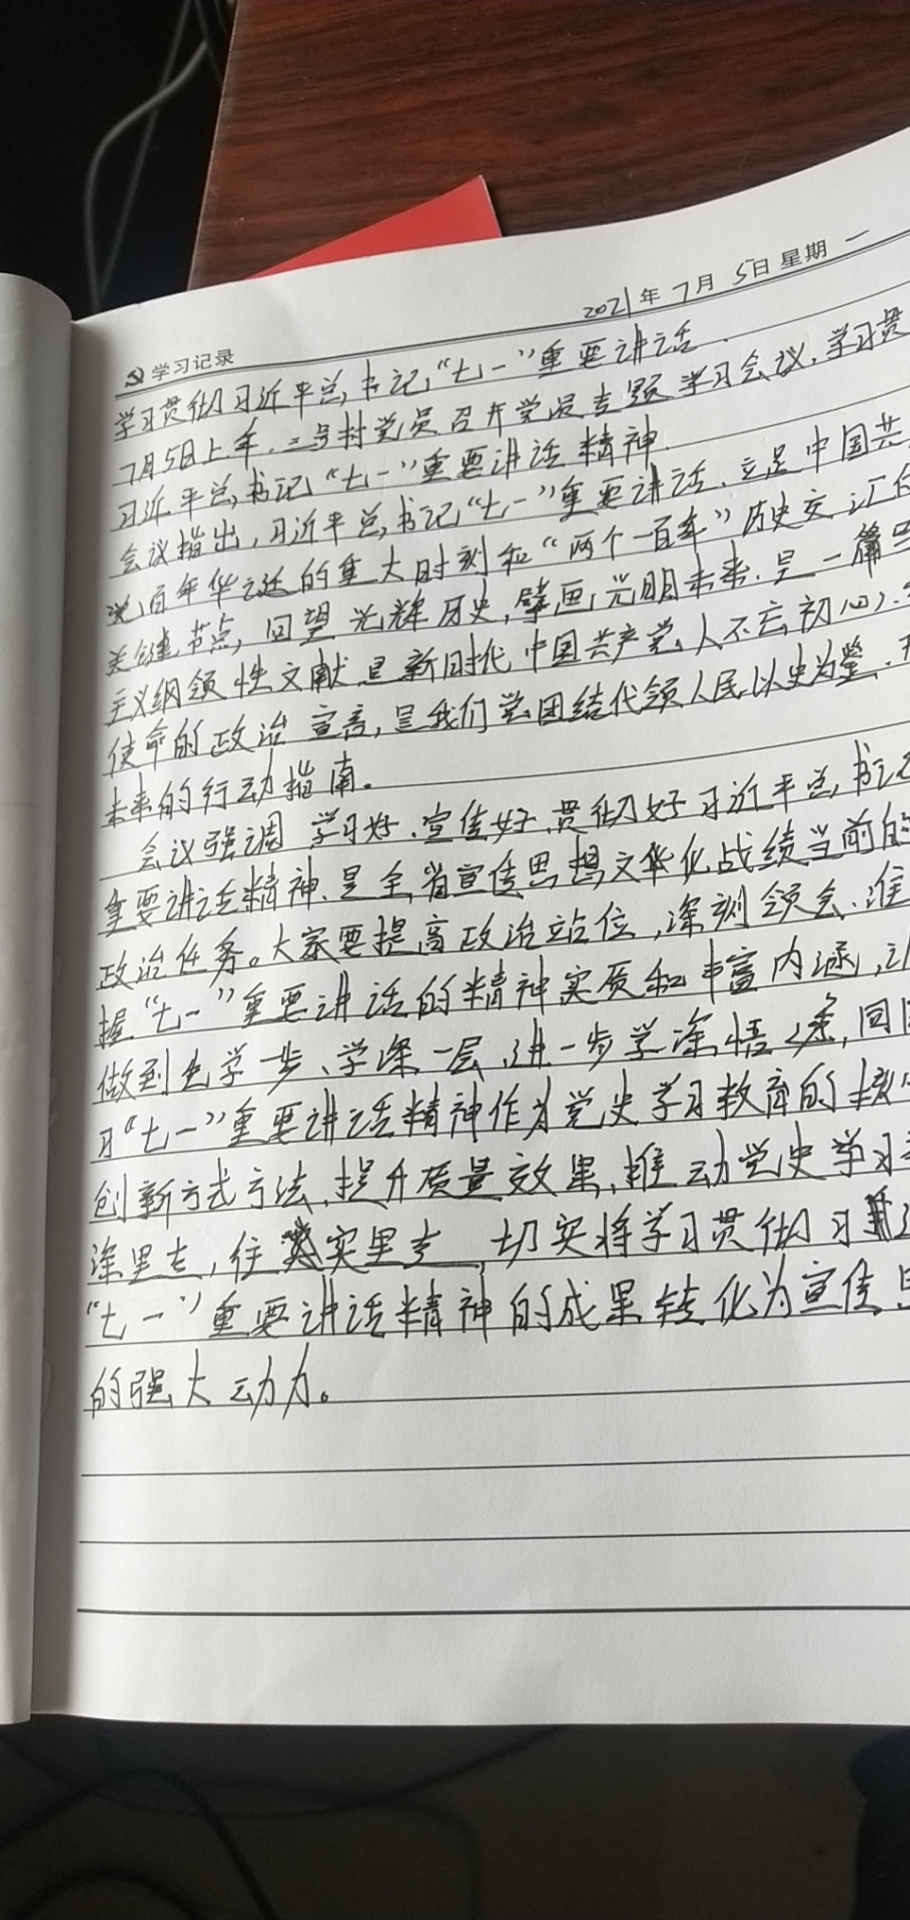 2021年7月5日星期一
学习记录
学习贯彻习近平总书记"七一"重要讲话.
7月5日上午.二号村党员召开党员专题学习会议,学习贯
习近平总书记"七一"重要讲话精神.
会议指出,习近平总书记"七一"重要讲话.立足中国共
党百年华诞的重大时刻和"两个一百年"历史交汇
关键节点,回望光辉历史,擘画光明未来.是一篇
主义纲领性文献是新时代中国共产党人不忘初心.
使命的政治宣言,是我们党团结代领人民以史为鉴.开
未来的行动指南。
会议强调 学习好.宣传好.贯彻好习近平总书记
重要讲话精神.是全省宣传思想文化战绩当前的
政治任务。大家要提高政治站位,深刻领会.准
握"七一"重要讲话的精神实质和丰富内涵,
做到先学一步、学深一层,进一步学深悟透,
习"七一"重要讲话精神作为党史学习教育的核心
创新方式方法,提升质量效果,推动党史学习
深里走,往实里走 切实将学习贯彻习近
"七一"重要讲话精神的成果转化为宣传思
的强大动力。